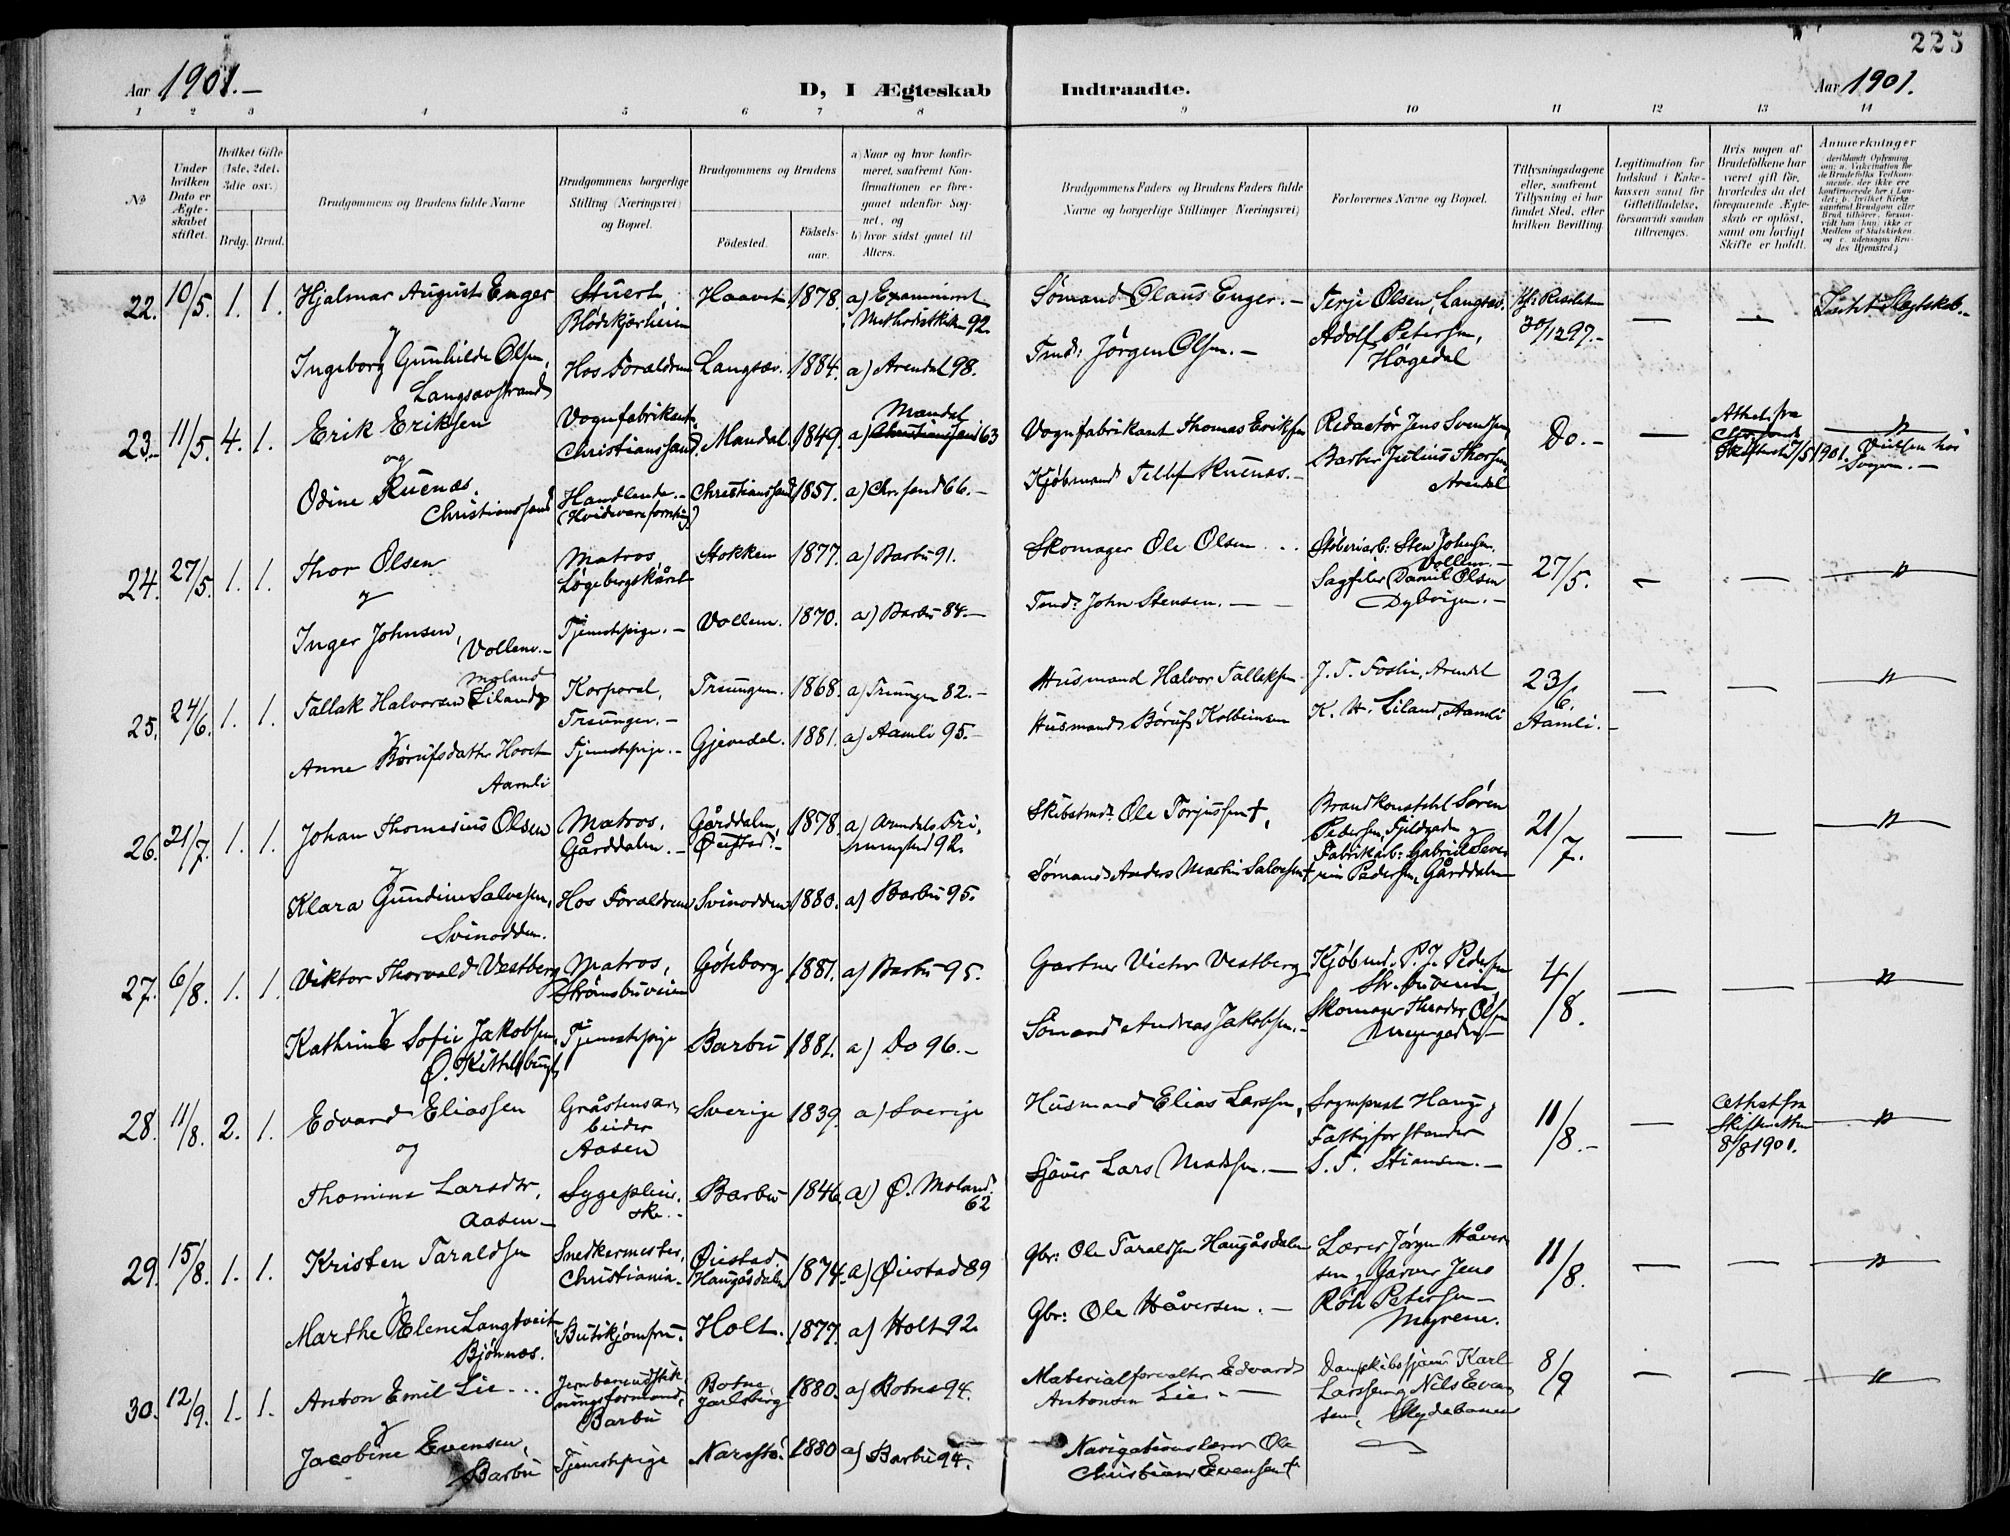 225
Aar 1901.–
D, I Ægteskab Indtraadte.
Aar 1901.
1 2 3 4 5 6 7 8 9 10 11 12 13 14
№
Under hvilken Dato er Ægteskabet stiftet.
Hvilket Gifte (1ste, 2det, 3die osv.)
Brdg. Brud.
Brudgommens og Brudens fulde Navne
Brudgommens borgerlige Stilling (Næringsvei) og Bopæl.
Brudgommens og Brudens
Fødested. Fødselsaar.
a) Naar og hvor konfirmeret, saafremt Konfirmationen er foregaaet udenfor Sognet, og
b) hvor sidst gaaet til Alters.
Brudgommens Faders og Brudens Faders fulde Navne og borgerlige Stillinger (Næringsvei)
Forlovernes Navne og Bopæl.
Tillysningsdagene eller, saafremt Tillysning ei har fundet Sted, efter hvilken Bevilling.
Legitimation for Indskud i Enkekassen samt for Giftetilladelse, forsaavidt saadan tiltrænges.
Hvis nogen af Brudefolkene har været gift før, hvorledes da det foregaaende Ægteskab er opløst, samt om lovligt Skifte er holdt.
Anmerkninger
22. 10/5. 1. 1. Hjalmar August Enger Stuert, 1878. a) Examineret Sømand Olaus Enger.– Terje Olsen, Langsæv. – –
Methodistkirken 92. Adolf Petersen, 30/12 97.–
Høgedal
Ingeborg Gunhilde Olsen, Hos Forældrene Langsæv. 1884. a) Arendal 98. Tmd: Jørgen Olsen.–
Langsævstrand
23. 11/5. 4. 1. Erik Eriksen Vognfabrikant, Mandal. 1849. a) Mandal 63 Vognfabrikant Thomas Eriksen Redactør Jens Svendsen, Do.– –
og Christianssand. Barber Julius Thorsen,
Arendal
Odine Ruenæs. Handlende.– Christianssand 1851. a) Chr.sand 66.– Kjøbmand Tellef Ruenæs.–
Christianssand
24. 27/5. 1. 1. Thor Olsen Matros Stokken 1877. a) Barbu 91. Skomager Ole Olsen Støberiarb: Sten Johnsen, 27/5. – – "
Løgebergskåret Vollene.–
Sagfiler Daniel Olsen
Dybvigen.–
Inger Johnsen, Tjenestepige.– Vollene. 1870. a) Barbu 84.– Tmd: John Stensen.–
Vollene.–
25. 24/6. 1. 1. Tallak Halvorsen Liland Korporal, Treungen. 1868. a) Treungen 82.– Husmand Halvor Tallaksen J. T. Foslie, Arendal 23/6. – – "
Moland Treungen.– Aamli.–
Anne Børufsdatter Hovet Tjenestepige.– Gjevedal. 1881. a) Aamli 95.– Husmand Børuf Kolbeinsen K. H. Liland, Aamli
Aamli
26. 21/7. 1. 1. Johan Thomasius Olsen Matros. Gårddalen, 1878. a) Arendals Fri- Skibstmd: Ole Torjussen †, Brandkonstabel Søren 21/7. – – "
Gårddalen.– Øiestad.– menighed 92. Pedersen,
Fabrikarb: Gabriel Seve-
rin Pedersen, Gårddalen
Klara Gundine Salvesen, Hos Forældrene Svinodden 1880. a) Barbu 95. Sømand Anders Martin Salvesen †
Svinodden.
27. 6/8. 1. 1. Viktor Thorvald Vestberg Matros, Göteborg 1881. a) Barbu 95. Gartner Victor Vestberg Kjøbmd. P. J. Pedersen 4/8. – – "
Strømsbuveien
Kathrine Sofie Jakobsen, Tjenestepige Barbu 1881. a) Do 96.– Sømand Andreas Jakobsen.– Skomager Theodor Olsen
Ø. Kittelsbugt
28. 11/8. 2. 1. Edvard Eliassen Gråstensar- Sverige 1839. a) Sverige Husmand Elias Larssen, Sognepræst Haug og 11/8.– – Attest fra "
og beider Fattigforstander Skifteretten
Aasen S. T. Stiansen.– 8/8 1901.
Thomine Larsdtr, Sygepleier- Barbu 1846. a) Ø. Moland Lars Madsen.–
Aasen– ske.– 62
29. 15/8. 1. 1. Kristen Taraldsen Snedkermester, Øiestad. 1874. a) Øiestad 89 Gbr: Ole Taraldsen Haugåsdalen Lærer Jørgen Håver- 11/8. – – "
Christiania.– Haugåsdalen sen og Garver Jens
Petersen–
Myrene.
Marthe Elene Langtveit Butikjomfru. Holt. 1877. a) Holt 92. Gbr: Ole Håversen.–
Bjønnes.
30. 12/9. 1. 1. Anton Emil Lie Botne 1880. a) Botne 94. Materialforvalter Edvard Karl 8/9 – – "
Jarlsberg Antonsen Lie.– Larssen og Nils Even-
Barbu sen,
Jacobine Evensen, Tjenestepige Narestø. 1880 a) Barbu 94. Navigationslærer Ole
Barbu Christian Evensen †